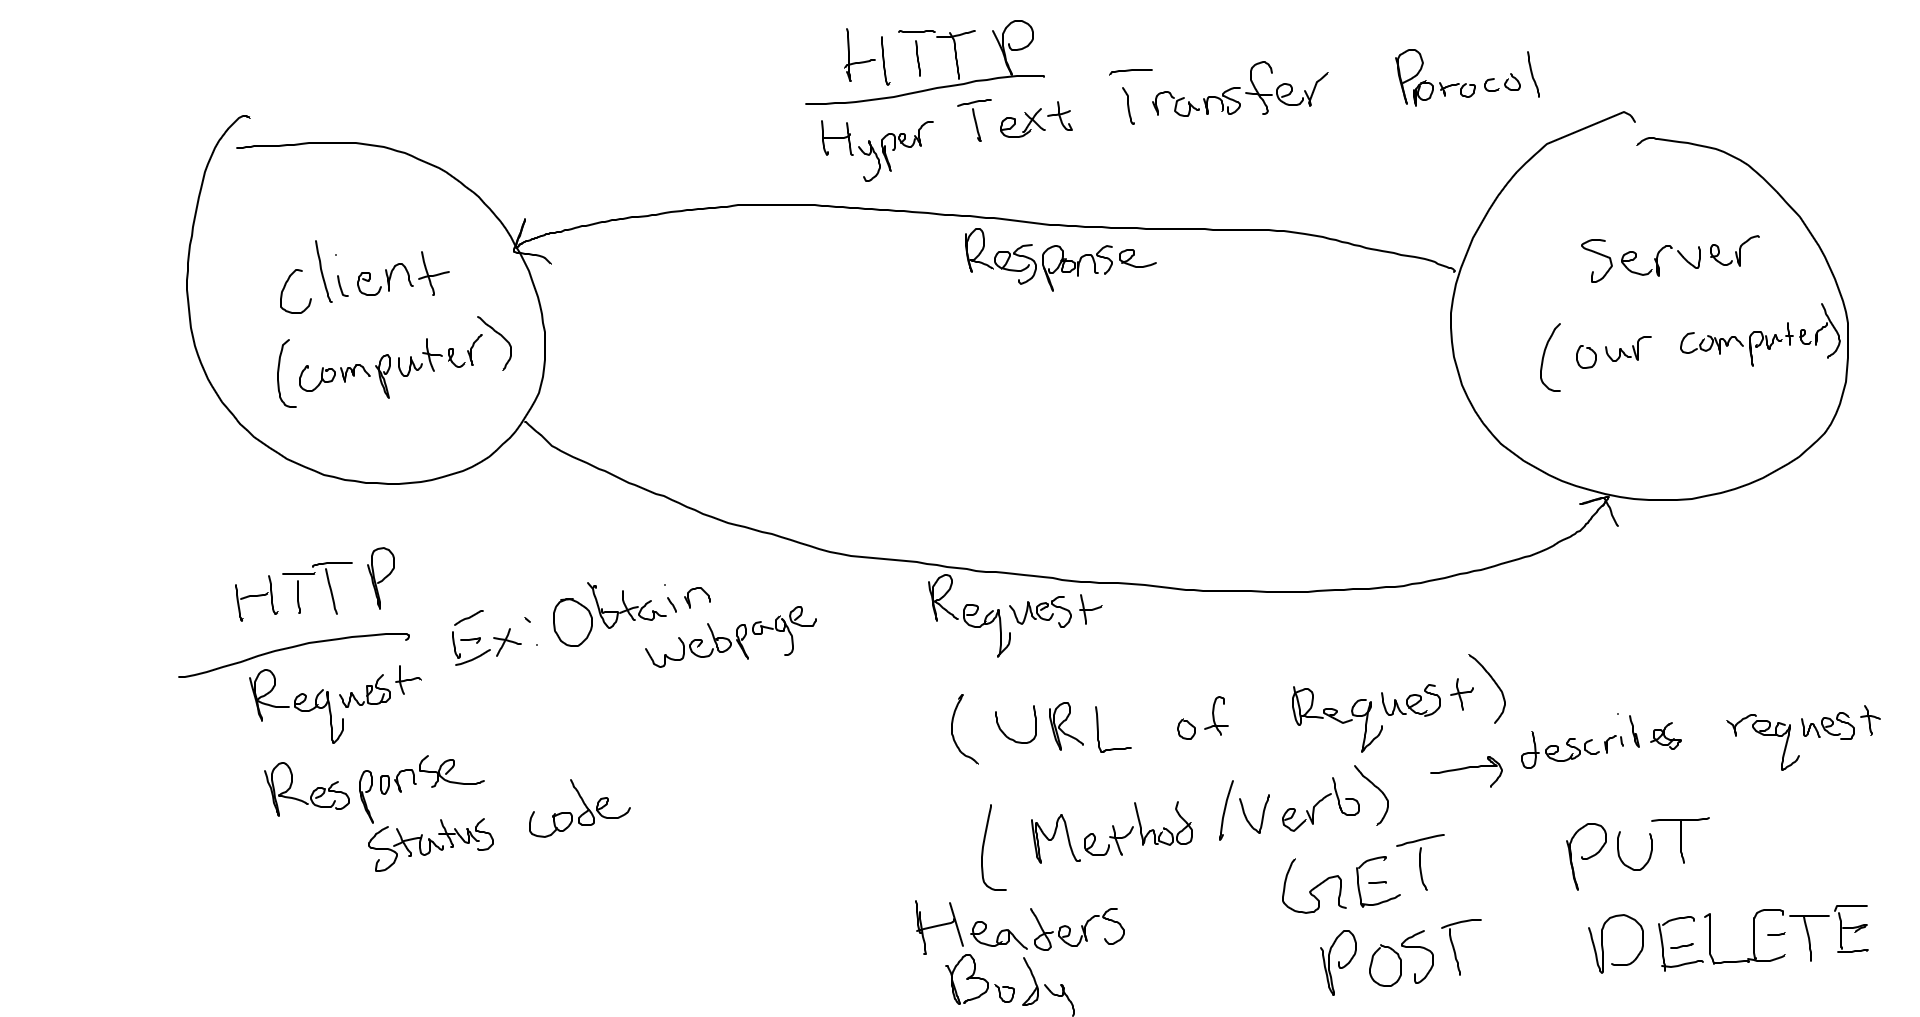 HTTP
Hyper Text Transfer Porocol
Response
Client
(computer)
Server
(our computer)
HTTP
Request
Ex: Obtain
webpage
Response
Status code
Request
(URL of Request)
(Method/Verb) → describes request
GET PUT
POST DELETE
Headers
Body